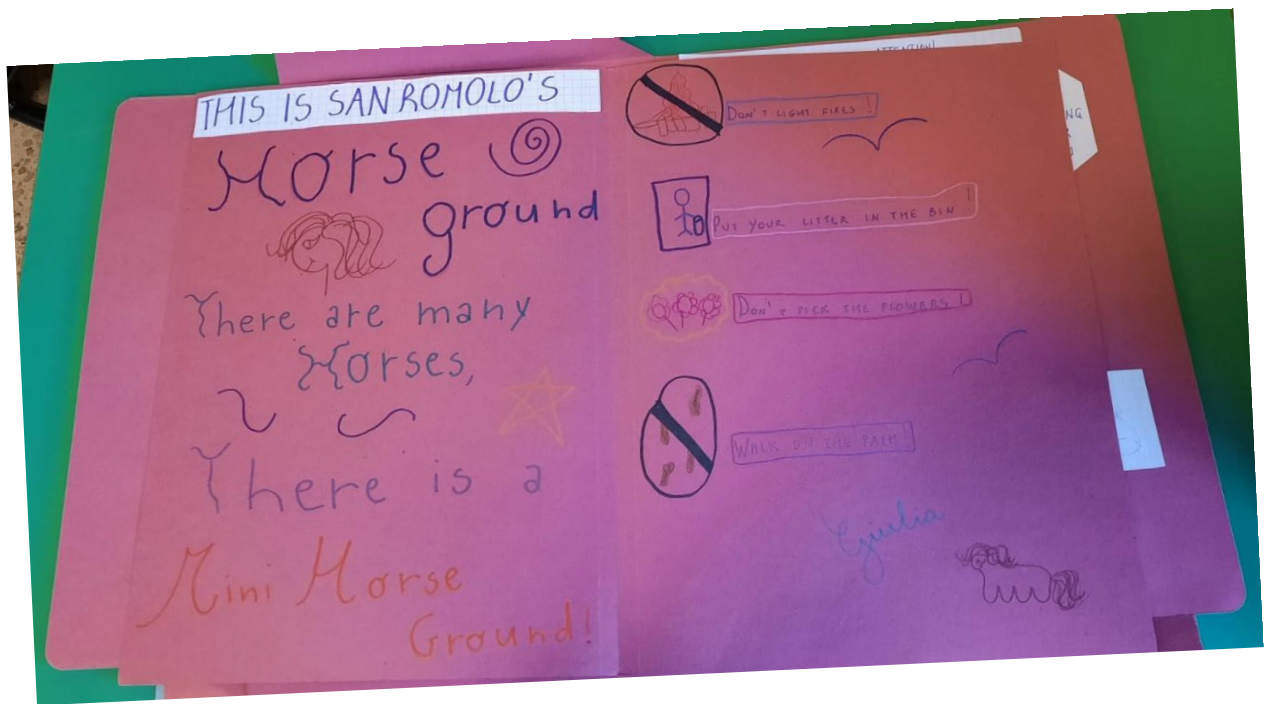 THIS IS SAN ROMOLO'S
Horse
ground
There are many
Horses,
There is a
Mini Horse
Ground!
ATTENTION!
DON'T LIGHT FIRES!
PUT YOUR LITTER IN THE BIN!
DON'T PICK THE FLOWERS!
WALK ON THE PATH!
Giulia
NG